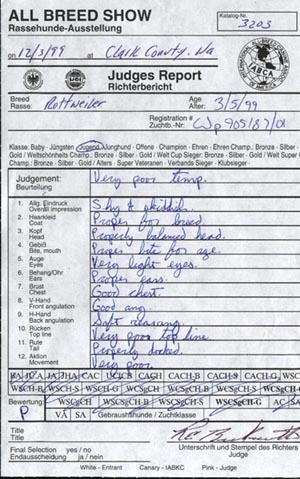 ALL BREED SHOW
Rassehunde-Ausstellung
Katalog-Nr.
3203
on 12/3/99 at Clark County. Wa
Judges Report
Richterbericht
ABCA
Breed Rasse: Rottweiler
Age Alter: 3/5/99
Registration # Zuchtb.-Nr:
Klasse: Baby · Jüngsten · Jugend · Junghund · Offene · Champion · Ehren · Ehren Champ.: Bronze · Silber ·
Gold / Weltschönheits Champ.: Bronze · Silber · Gold / Welt Cup Sieger: Bronze · Silber · Gold / Welt Super
Champ.: Bronze · Silber · Gold / Alters · Super Veteranen · Verbands Sieger · Klubsieger ·
Judgement: Beurteilung Very poor temp.
1. Allg. Eindruck Overall Impression Shy & skiddish.
2. Haarkleid Coat Proper for breed
3. Kopf Head Properly balanced head.
4. Gebiß Bite, mouth Proper bite for age.
5. Auge Eyes Very light eyes.
6. Behang/Ohr Ears Proper ears.
7. Brust Chest Good chest.
8. V-Hand Front angulation Good ang.
9. H-Hand Back angulation Soft
10. Rücken Top line Very poor top line
11. Rute Tail Properly docked.
12. Aktion Movement Very Poor.
CAC UCICB CACH CACH-B CACH-S CACH-G
WSCH-S WSCH-G WCSgCH
Bewertung: P
VÄ SA Gebrauchshunde / Zuchtklasse
Title
Title
Final Selection yes / no
Endausscheidung ja / nein
Unterschrift und Stempel des Richters
Judge
White - Entrant Canary - IABKC Pink - Judge